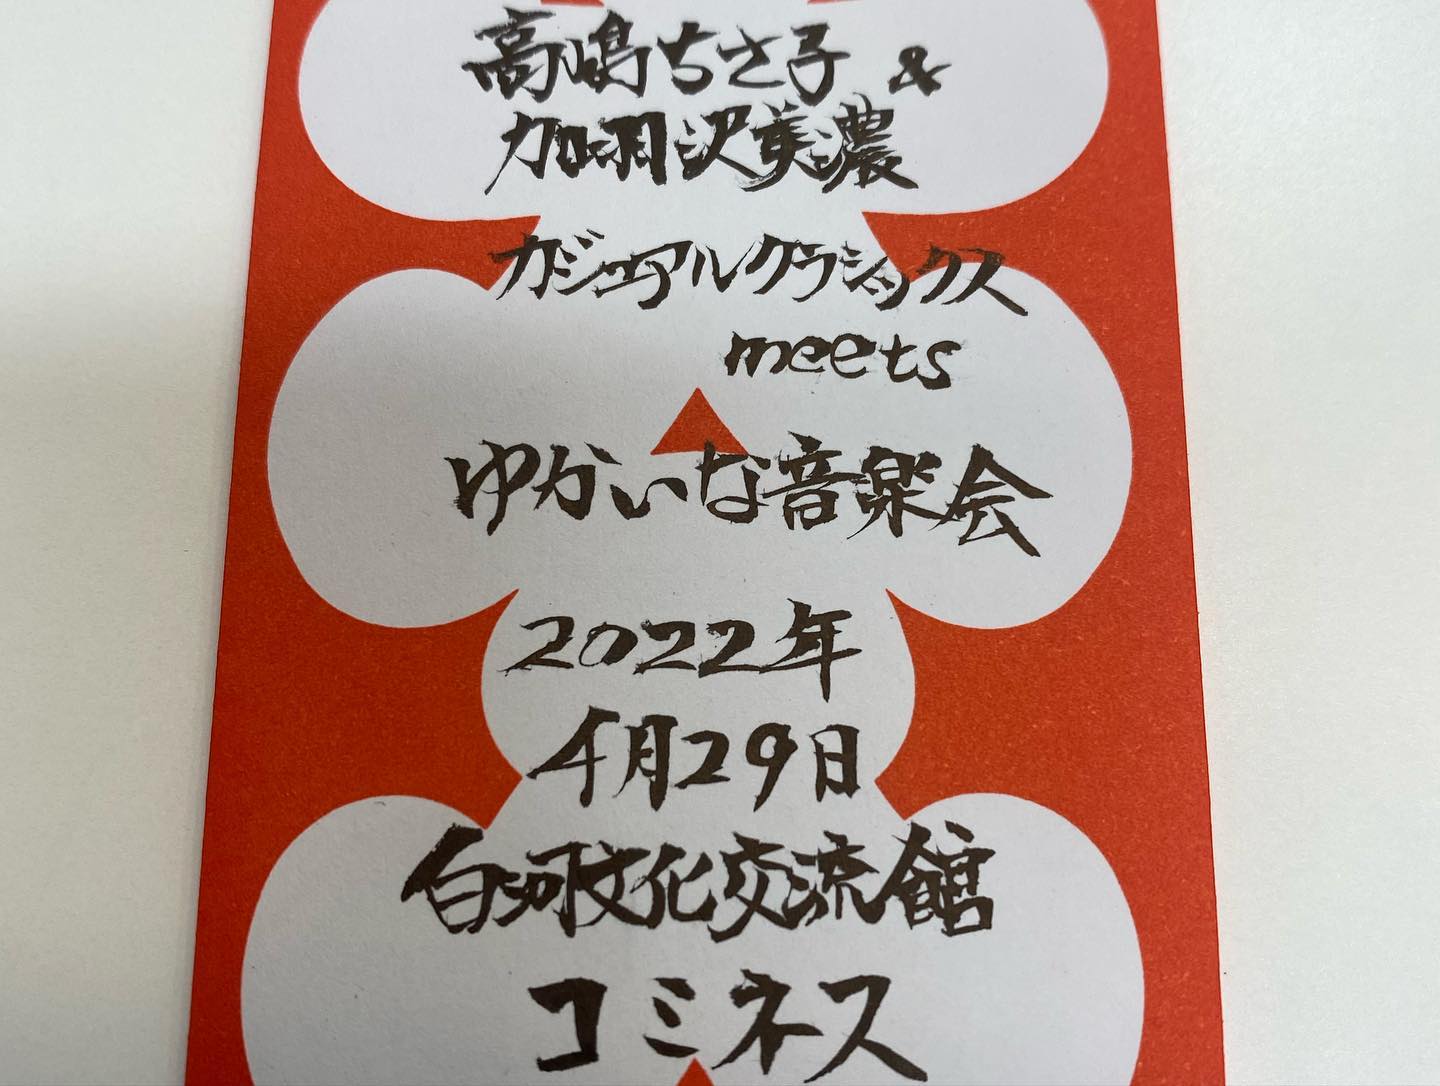 高嶋ちさ子 &
加羽沢美濃
カジュアルクラシックス
meets
ゆかいな音楽会
2022年
4月29日
白河文化交流館
コミネス